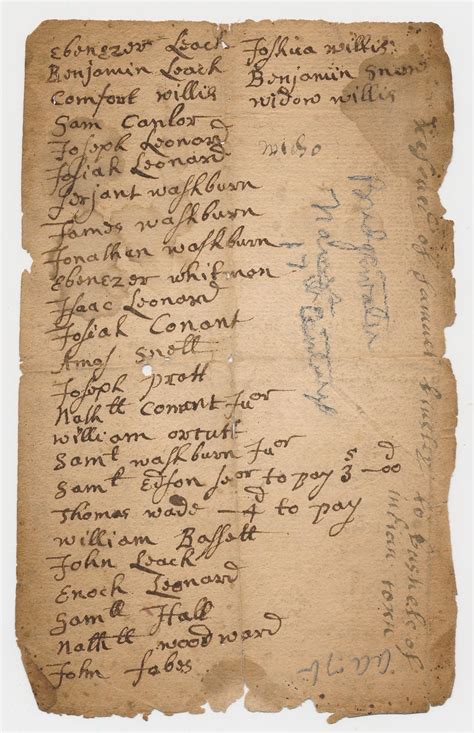 Ebenezer Leach
Benjamin Leach
Comfort willis
Sam Cantor
Joseph Leonard
Josiah Leonard
Serjant washburn
James washburn
Jonathan washburn
Ebenezer whitmen
Isaac Leonard
Josiah Conant
Amos Snell
Joseph pratt
Nathll Conant Juer
William orcutt
Samll washburn Juer
Samll Edson seer to pay 3s – 00d
Thomas wade – 4d to pay
William Bassett
John Leach
Enoch Leonard
Samll Hall
Nathll woodward
John fabes
Joshua willis
Benjamin Snow
widow willis
Bridgewater
17th Century
of Samuel to bushels of
indian corn